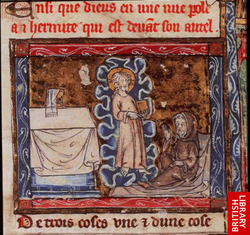 Ensi que dieus en une nue pole
a .i. hermite qui est deuāt son autel
De trois coses vne & dune cose
BRITISH
LIBRARY